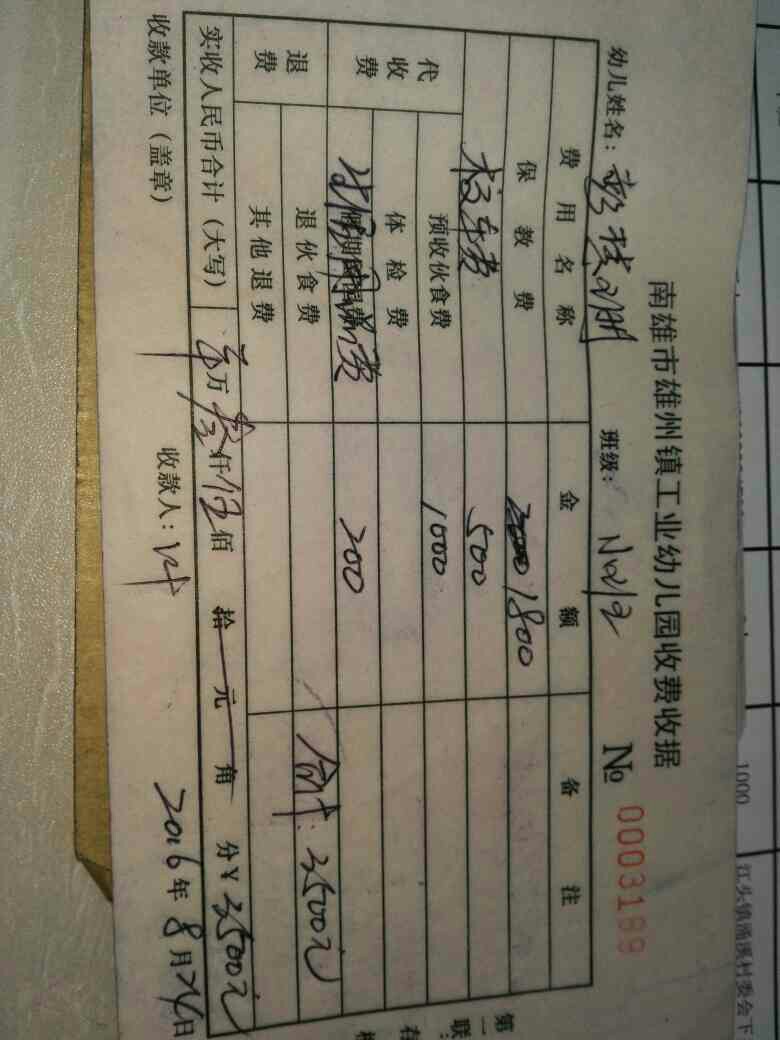 南雄市雄州镇工业幼儿园收费收据
幼儿姓名: 班级: № 0003189
费用名称 金额 备注
保教费 1800
校车费 500
代收费 预收伙食费 1000
体检费
费 200
退费 退伙食费 合计:3500元
其他退费
实收人民币合计(大写) 万叁仟伍佰拾元角分¥3500元
收款单位(盖章) 收款人: 2016年8月24日
第一联:存
1000
江头镇涌溪村委会下